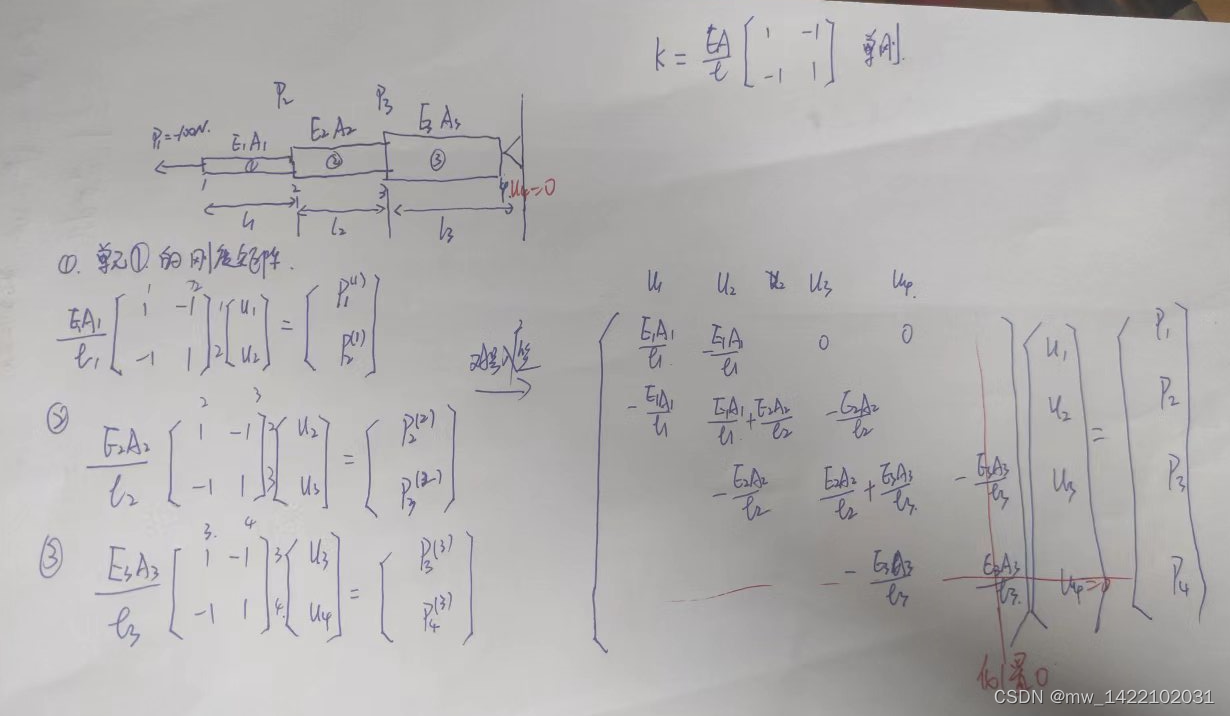 k = EA/l [1 -1; -1 1] 单刚.
P2 P3
P1=-100N. E1A1 E2A2 E3A3
① ② ③
1 2 3 4 u4=0
l1 l2 l3
①. 单元①的刚度矩阵.
1 2
E1A1/l1 [1 -1; -1 1] 1 2 {u1; u2} = {P1(1); P2(1)}
②
2 3
E2A2/l2 [1 -1; -1 1] 2 3 {u2; u3} = {P2(2); P3(2)}
③
3. 4
E3A3/l3 [1 -1; -1 1] 3 4. {u3; u4} = {P3(3); P4(3)}
对号入座
u1 u2 u3 u4.
E1A1/l1 -E1A1/l1 0 0 u1 P1
-E1A1/l1 E1A1/l1+E2A2/l2 -E2A2/l2 u2 = P2
-E2A2/l2 E2A2/l2+E3A3/l3. -E3A3/l3 u3 P3
-E3A3/l3 E3A3/l3. u4=0 P4
置0
CSDN @mw_1422102031